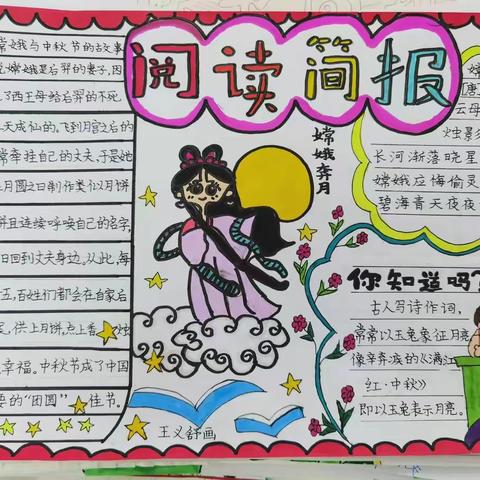 阅读简报
常娥与中秋节的故事
嫦娥是后羿的妻子,因
了西王母给后羿的不死
天成仙的。飞到月宫之后的
常牵挂自己的丈夫,于是她
月圆之日制作类似月饼
并且连续呼唤自己的名字,
日回到丈夫身边。从此,每
五,百姓们都会在自家后
供上月饼,点上香
幸福。中秋节成了中国
要的“团圆”佳节。
嫦娥奔月
王义舒画
嫦
唐
云母
烛影
长河渐落晓星
嫦娥应悔偷灵
碧海青天夜夜
你知道吗?
古人写诗作词,
常常以玉兔象征月亮
像辛弃疾的《满江
红·中秋》
即以玉兔表示月亮。